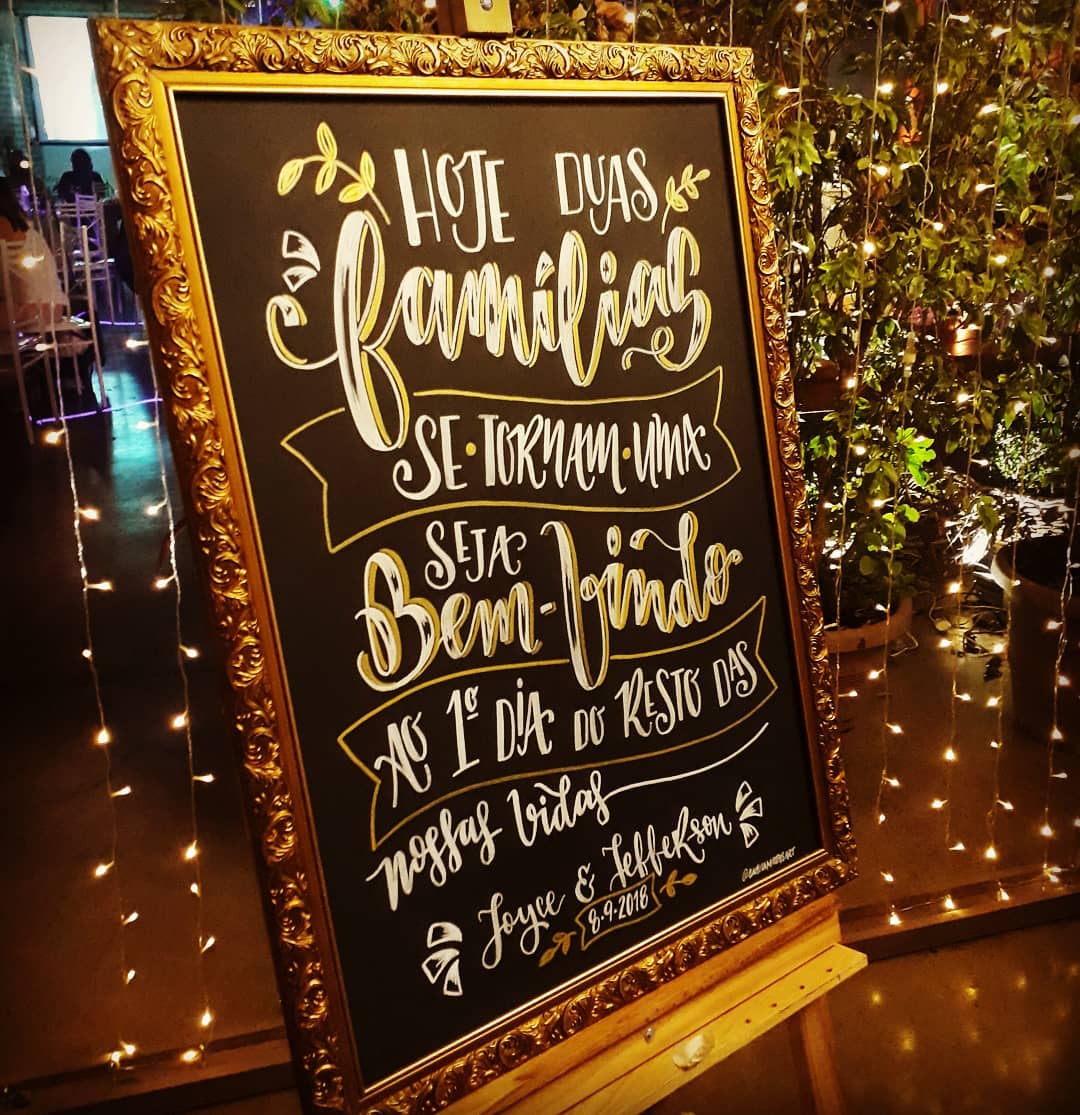 HOJE DUAS
famílias
SE·TORNAM·UMA
SEJA
Bem-Vindo
AO 1º DIA DO RESTO DAS
nossas vidas
Joyce & Jefferson
8·9·2018